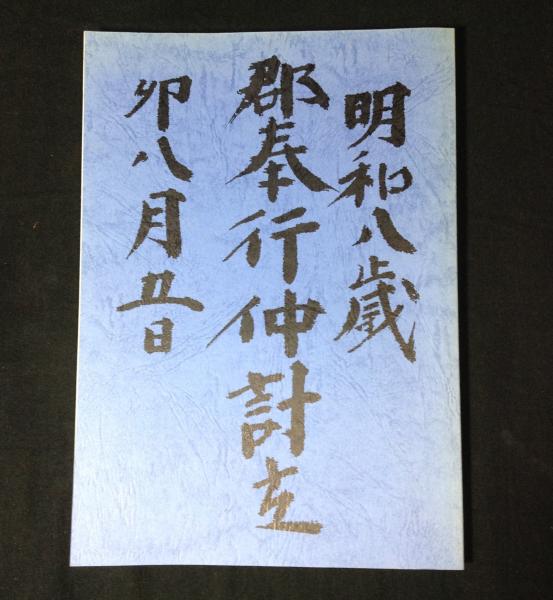 明和八歳
郡奉行仲計立
卯八月五日